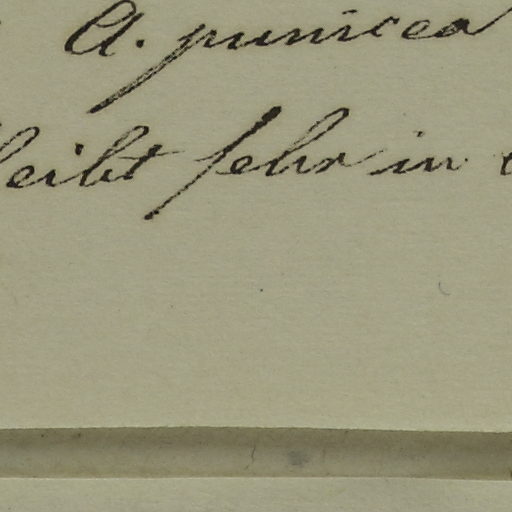 A. punicea
leibt sehr in